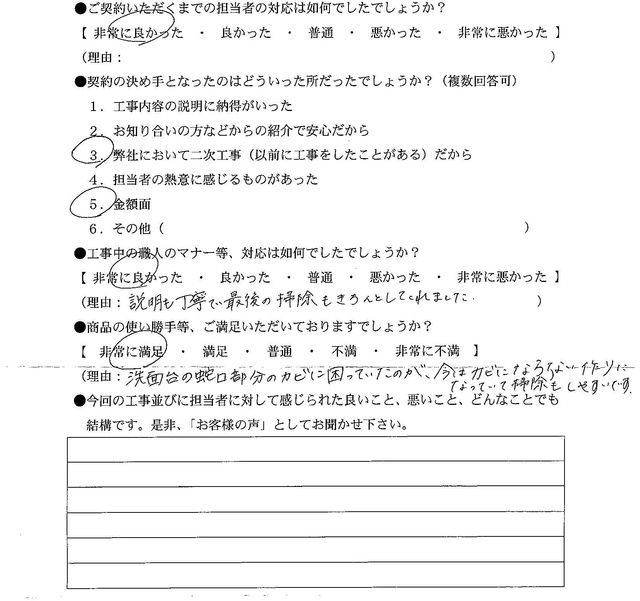 ●ご契約いただくまでの担当者の対応は如何でしたでしょうか?
【 非常に良かった ・ 良かった ・ 普通 ・ 悪かった ・ 非常に悪かった 】
(理由: )
●契約の決め手となったのはどういった所だったでしょうか?(複数回答可)
1．工事内容の説明に納得がいった
2．お知り合いの方などからの紹介で安心だから
3．弊社において二次工事(以前に工事をしたことがある)だから
4．担当者の熱意に感じるものがあった
5．金額面
6．その他( )
●工事中の職人のマナー等、対応は如何でしたでしょうか?
【 非常に良かった ・ 良かった ・ 普通 ・ 悪かった ・ 非常に悪かった 】
(理由:説明も丁寧で最後の掃除もきちんとしてくれました。 )
●商品の使い勝手等、ご満足いただいておりますでしょうか?
【 非常に満足 ・ 満足 ・ 普通 ・ 不満 ・ 非常に不満 】
(理由:洗面台の蛇口部分のカビに困っていたのが、今はカビにならない作りに
なっていて掃除もしやすいです。
●今回の工事並びに担当者に対して感じられた良いこと、悪いこと、どんなことでも
結構です。是非、「お客様の声」としてお聞かせ下さい。